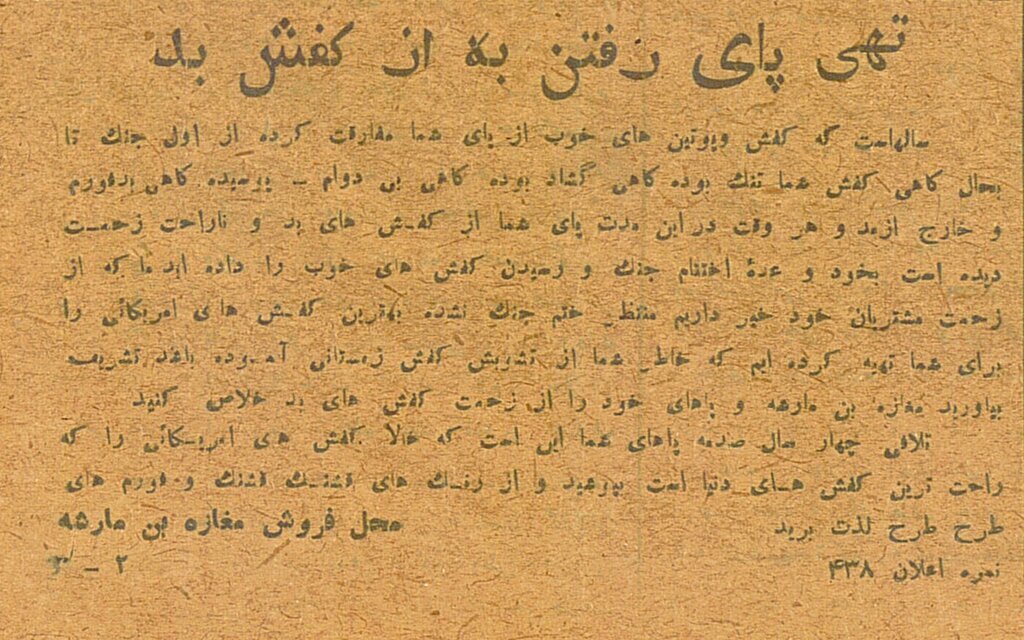 تهی پای رفتن به از کفش بد
سالهاست که کفش وپوتین های خوب از پای شما مفارقت کرده از اول جنك تا
بحال گاهی کفش شما تنك بوده گاهی گشاد بوده گاهی بی دوام ــ پوسیده گاهی بدفورم
و خارج ازمد و هر وقت در این مدت پای شما از کفش های بد و ناراحت زحمت
دیده است بخود وعدهٔ اختتام جنك و رسیدن کفش های خوب را داده اید ما که از
زحمت مشتریان خود خبر داریم منتظر ختم جنك نشده بهترین کفش های امریکائی را
برای شما تهیه کرده ایم که خاطر شما از تشویش کفش زمستانی آسوده باشد تشریف
بیاورید مغازه بن مارشه و پاهای خود را از زحمت کفش های بد خلاص کنید
تلافی چهار سال صدمه پاهای شما این است که حالا کفش های امریکائی را که
راحت ترین کفش های دنیا است بپوشید و از رنك های قشنك قشنك و فورم های
طرح طرح لذت برید
محل فروش مغازه بن مارشه
نمره اعلان ۴۳۸
۲ ــ